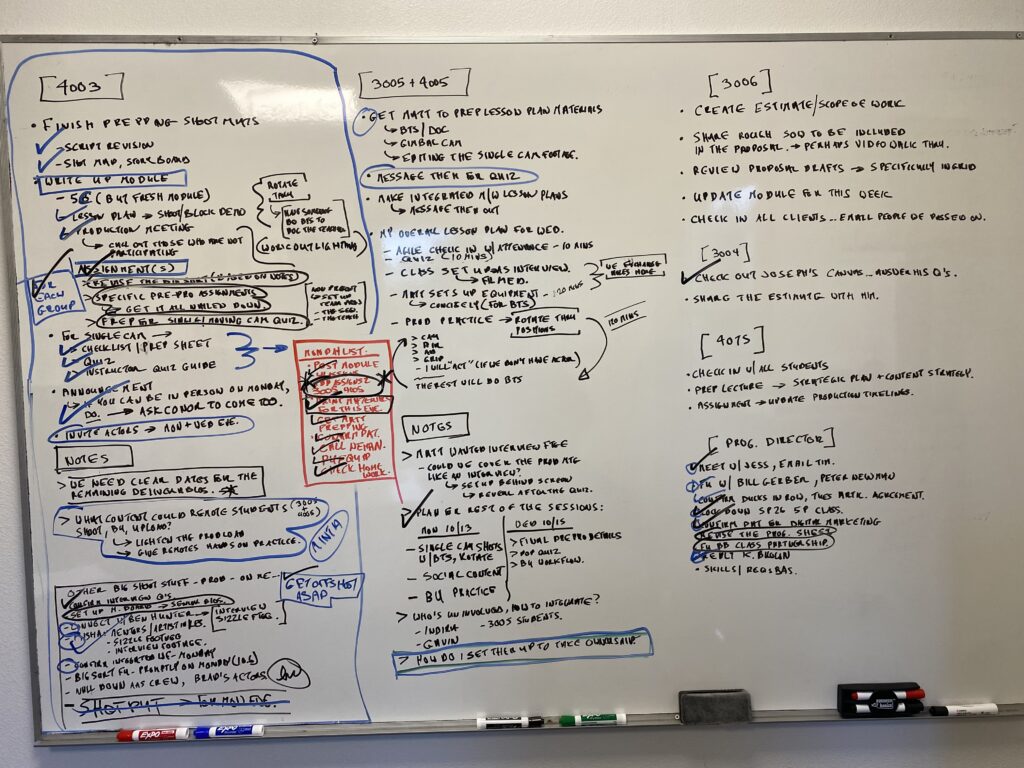 [4003]
• FINISH PREPPING SHOOT MATS
- SCRIPT REVISION
- SHOT MAP, STORYBOARD
• WRITE UP MODULE
- 5B (BUT FRESH MODULE)
- LESSON PLAN → SHOOT/BLOCK DEMO
- PRODUCTION MEETING
CALL OUT THOSE WHO ARE NOT
PARTICIPATING
ROTATE
HAVE SOMEONE
DO BTS TO
WORK OUT LIGHTING
ASSIGNMENT(S)
> REVISE THE (BASED ON NOTES)
> SPECIFIC PRE-PRO ASSIGNMENTS
GET IT ALL NAILED DOWN
> PREP FOR SINGLE/MOVING CAM QUIZ.
FOR
EACH
GROUP
• FOR SINGLE CAM →
- CHECKLIST/PREP SHEET
- QUIZ
- INSTRUCTOR QUIZ GUIDE
• ANNOUNCEMENT
- IF YOU CAN BE IN PERSON ON MONDAY,
DO. → ASK CONOR TO COME TOO.
• INVITE ACTORS → MON + WED EVE.
NOTES
> WE NEED CLEAR DATES FOR THE
REMAINING DELIVERABLES.
> WHAT CONTENT COULD REMOTE STUDENTS (3005 + 4005)
SHOOT, B4, UPLOAD?
↳ LIGHTEN THE PROD LOAD
↳ GIVE REMOTES HANDS ON PRACTICE.
OTHER BIG SHOOT STUFF - PROD - ON ME -
GET OFF SHOT
ASAP
- CONFIRM INTERVIEW Q'S.
- SET UP M. BOARD →
- CONNECT W/ BEN HUNTER → INTERVIEW
SIZZLE FTG.
MENTORS/ARTIST
- SIZZLE FOOTAGE
- INTERVIEW FOOTAGE.
- CONFIRM INTEGRATED WE - MONDAY
- BIG SORT FU - PROMPTLY ON MONDAY
- NAIL DOWN CREW, BRAD'S ACTORS
- SHOT PUT → FOR MON EVE.
MONDAY LIST.
• POST MODULE
3005 4005
• PRINT MATERIALS
FOR THIS EVE.
• GET MATT
PREPPING
• CONFIRM PAT.
• CALL
• EQUIP
• CHECK HOME
WORK.
[3005 + 4005]
• GET MATT TO PREP LESSON PLAN MATERIALS
↳ BTS/DOC
↳ GIMBAL CAM
↳ EDITING THE SINGLE CAM FOOTAGE.
• MESSAGE THEM FOR QUIZ
• MAKE INTEGRATED M/W LESSON PLANS
↳ MESSAGE THEM OUT
• MP OVERALL LESSON PLAN FOR WED.
- AGILE CHECK IN W/ ATTENDANCE - 10 MINS
- QUIZ (10 MINS)
- CLASS SET UP AS INTERVIEW.
↳ FILMED.
WE EXCHANGE
ROLES HERE
- MATT SETS UP EQUIPMENT - 20 MINS
↳ CONCISELY (FOR BTS)
- PROD PRACTICE → ROTATE THRU
POSITIONS
120 MINS
> CAM
> DIR
> AD
> GRIP
- I WILL "ACT" (IF WE DON'T HAVE ACTOR)
- THE REST WILL DO BTS
NOTES
> MATT WANTED INTERVIEW FREE
- COULD WE COVER THE PROD MTG
LIKE AN INTERVIEW?
↳ SET UP BEHIND SCREEN
↳ REVEAL AFTER THE QUIZ.
> PLAN FOR REST OF THE SESSIONS:
MON 10/13
- SINGLE CAM SHOTS
W/BTS, ROTATE
- SOCIAL CONTENT
- B4 PRACTICE
WED 10/15
> FINAL PREPRO DETAILS
> POP QUIZ
> B4 WORKFLOW.
> WHO'S UNINVOLVED, HOW TO INTEGRATE?
- INDIRA - 3005 STUDENTS.
- GAVIN
> HOW DO I SET THEM UP TO TAKE OWNERSHIP
[3006]
• CREATE ESTIMATE/SCOPE OF WORK
• SHARE ROUGH SOW TO BE INCLUDED
IN THE PROPOSAL. → PERHAPS VIDEO WALK THRU.
• REVIEW PROPOSAL DRAFTS → SPECIFICALLY INGRID
• UPDATE MODULE FOR THIS WEEK
• CHECK IN ALL CLIENTS... EMAIL PEOPLE WE PASSED ON.
[3004]
• CHECK OUT JOSEPH'S CANVAS... ANSWER HIS Q'S.
• SHARE THE ESTIMATE WITH HIM.
[4075]
• CHECK IN W/ ALL STUDENTS
• PREP LECTURE → STRATEGIC PLAN + CONTENT STRATEGY.
• ASSIGNMENT → UPDATE PRODUCTION TIMELINES.
[PROG. DIRECTOR]
• MEET W/ JESS, EMAIL TIM.
• FU W/ BILL GERBER, PETER NEWMAN
- CONFIRM DUCKS IN ROW, TUES ARTIC. AGREEMENT.
- LOCK DOWN SP26 5P CLASS.
- CONFIRM PAT FOR DIGITAL MARKETING
- REVISE THE PROG. SHEET
- FU BD CLASS PARTNERSHIP
- REPLY K. BROWN
- SKILLS/
EXPO
EXPO